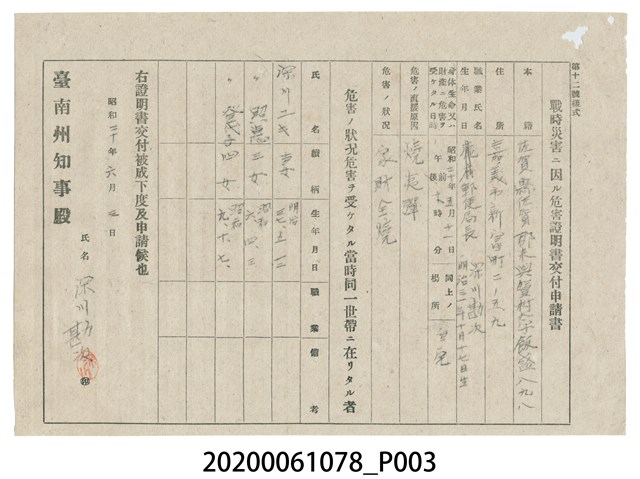 第十二號樣式
戰時災害ニ因ル危害證明書交付申請書
本籍 佐賀縣佐賀郡東與賀村字飯盛八九八
住所 嘉義市新富町二ノ五九
職業氏名 郵便局長 深川勘次
生年月日 明治三一年十月十七日生
身体生命又ハ財產ニ危害ヲ受ケタル日時 昭和二十年五月十一日 午前 午後 時 分
同上ノ場所 自宅
危害ノ直接原因 燒夷彈
危害ノ狀況 家財全燒
危害ノ狀況危害ヲ受ケタル當時同一世帶ニ在リタル者
氏名 續柄 生年月日 職業 備考
深川 妻 明治
〃 三女 昭和 六、四、三
〃 四女 昭和 九、十、七、
右證明書交付被成下度及申請候也
昭和二十年六月 日
氏名 深川勘次
臺南州知事殿
20200061078_P003